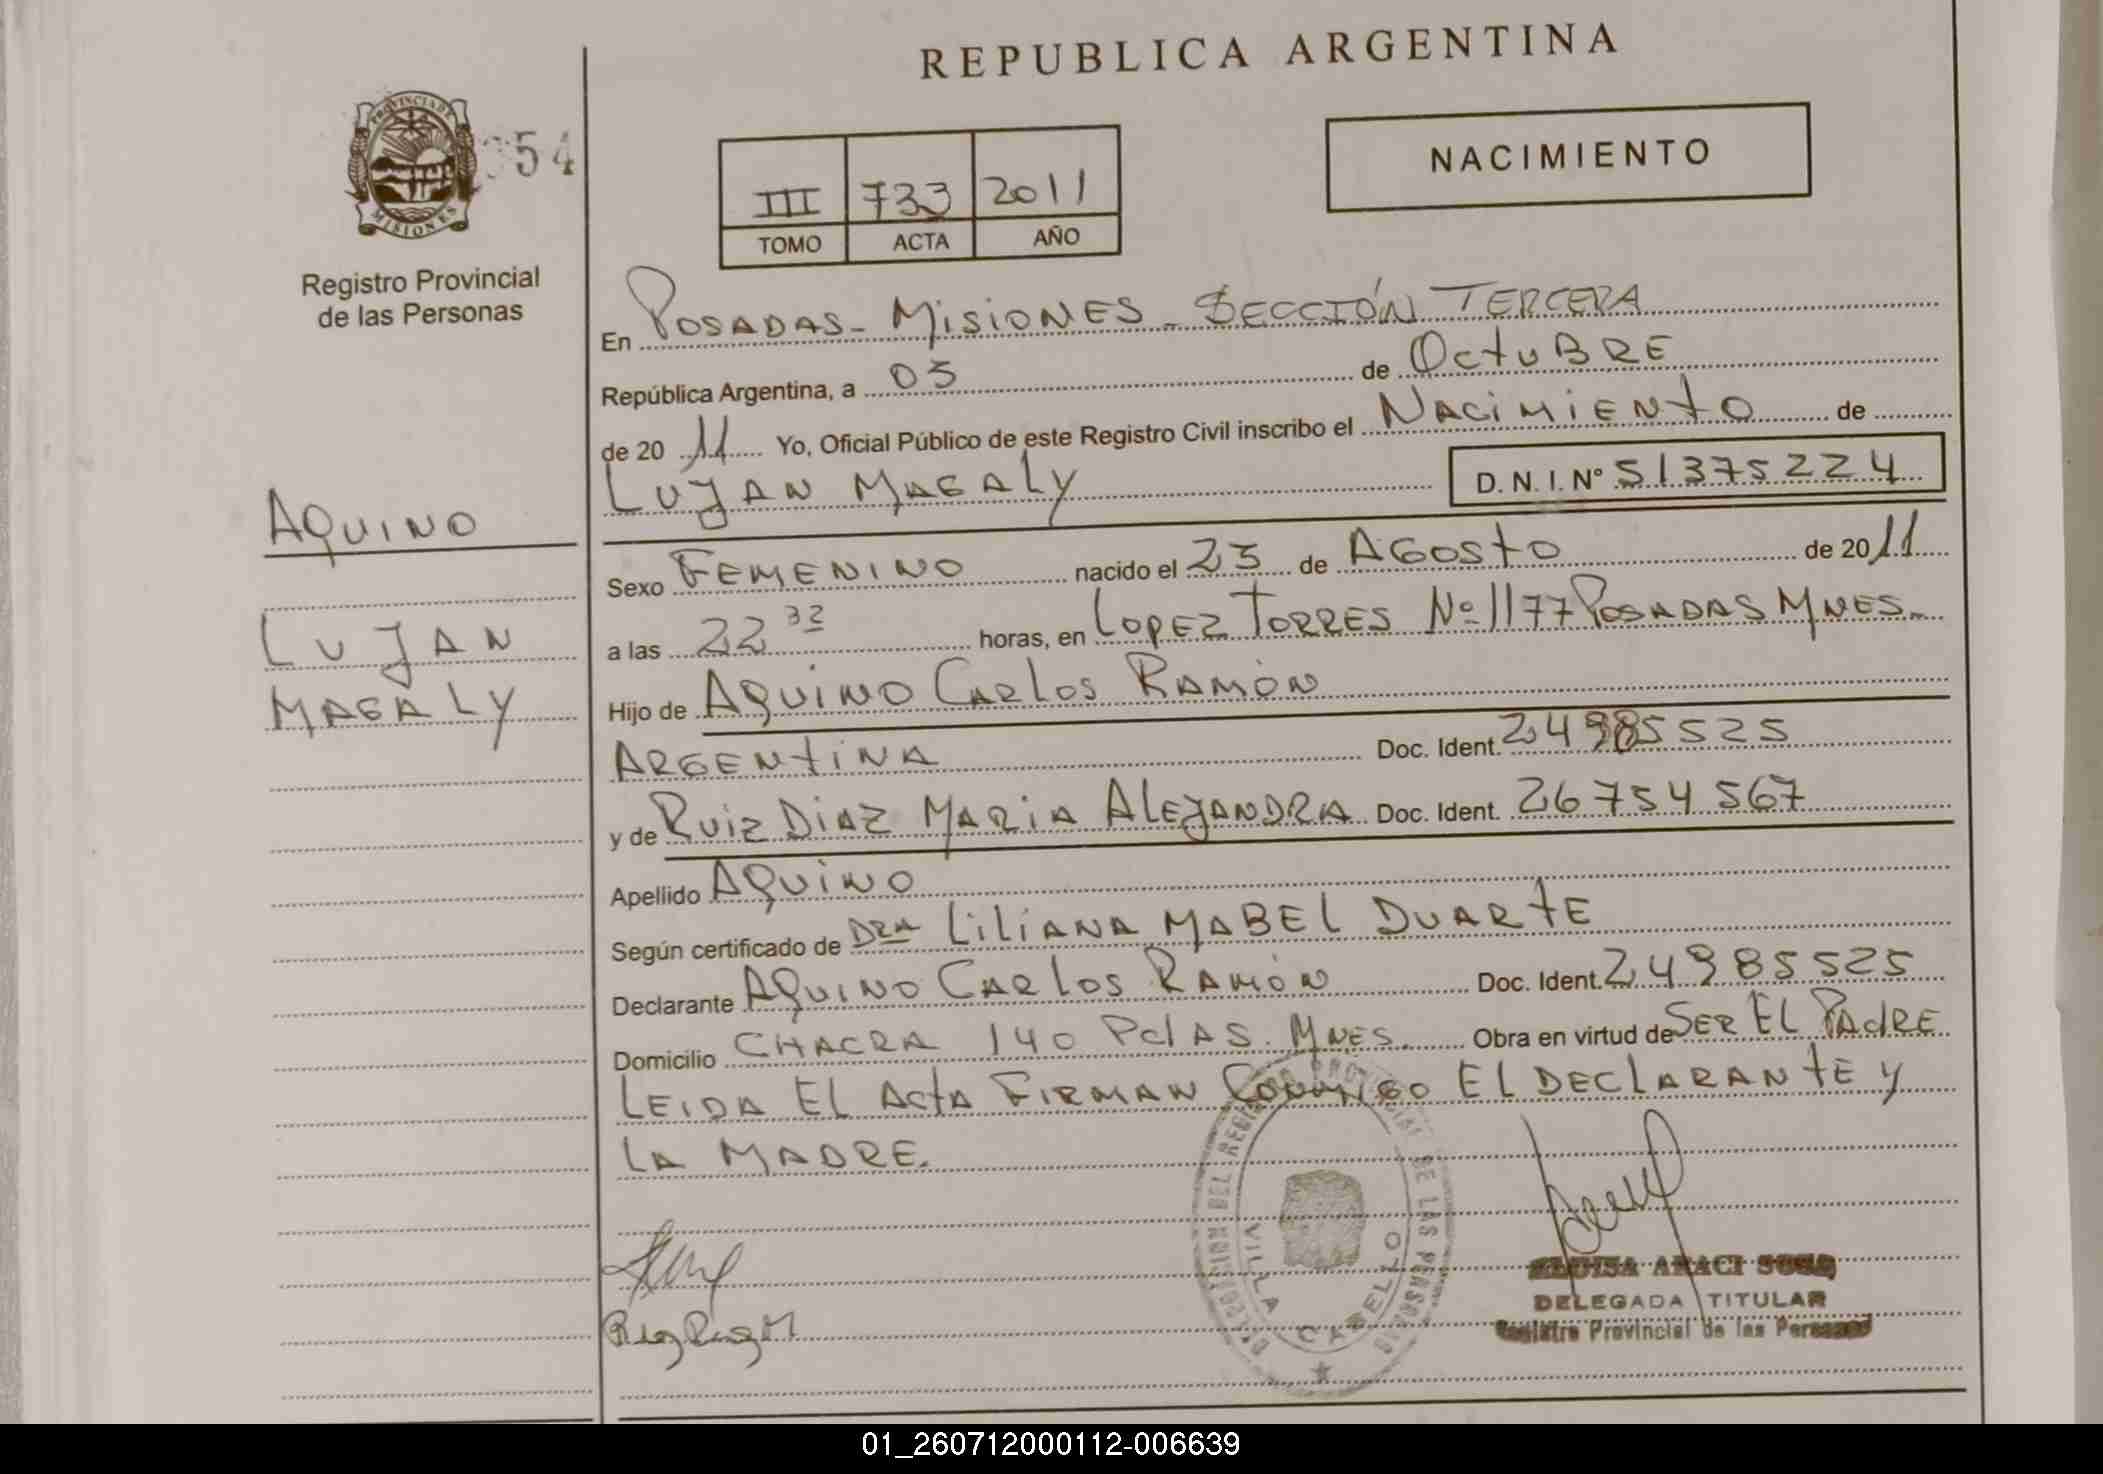 REPUBLICA ARGENTINA
PROVINCIA DE
MISIONES
54
Registro Provincial
de las Personas
NACIMIENTO
III 733 2011
TOMO ACTA AÑO
En POSADAS - MISIONES - SECCIÓN TERCERA
República Argentina, a 03 de OCTUBRE
de 20 11 Yo, Oficial Público de este Registro Civil inscribo el NACIMIENTO de
LUJAN MAGALY D.N.I. Nº 51375224
AQUINO
LUJAN
MAGALY
Sexo FEMENINO nacido el 23 de AGOSTO de 2011
a las 22 32 horas, en LOPEZ TORRES Nº 1177 POSADAS MNES.
Hijo de AQUINO CARLOS RAMÓN
ARGENTINA Doc. Ident. 24985525
y de RUIZ DIAZ MARIA ALEJANDRA Doc. Ident. 26754567
Apellido AQUINO
Según certificado de DRA LILIANA MABEL DUARTE
Declarante AQUINO CARLOS RAMÓN Doc. Ident. 24985525
Domicilio CHACRA 140 PdAS. MNES. Obra en virtud de SER EL PADRE
LEIDA EL ACTA FIRMAN CONMIGO EL DECLARANTE Y
LA MADRE.
VILLA CABELLO
DELEGADA TITULAR
Registro Provincial de las Personas
01_260712000112-006639